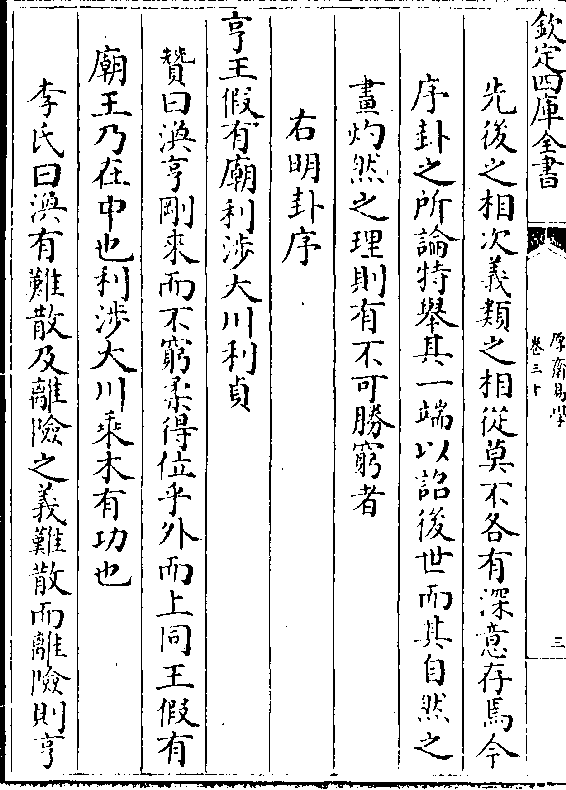 欽定四庫全書
厚齋易學
卷三十
三
先後之相次義類之相從莫不各有深意存焉今
序卦之所論特舉其一端以詔後世而其自然之
畫灼然之理則有不可勝窮者
右明卦序
亨王假有廟利涉大川利貞
贊曰渙亨剛來而不窮柔得位乎外而上同王假有
廟王乃在中也利涉大川乘木有功也
李氏曰渙有難散及離險之義難散而離險則亨